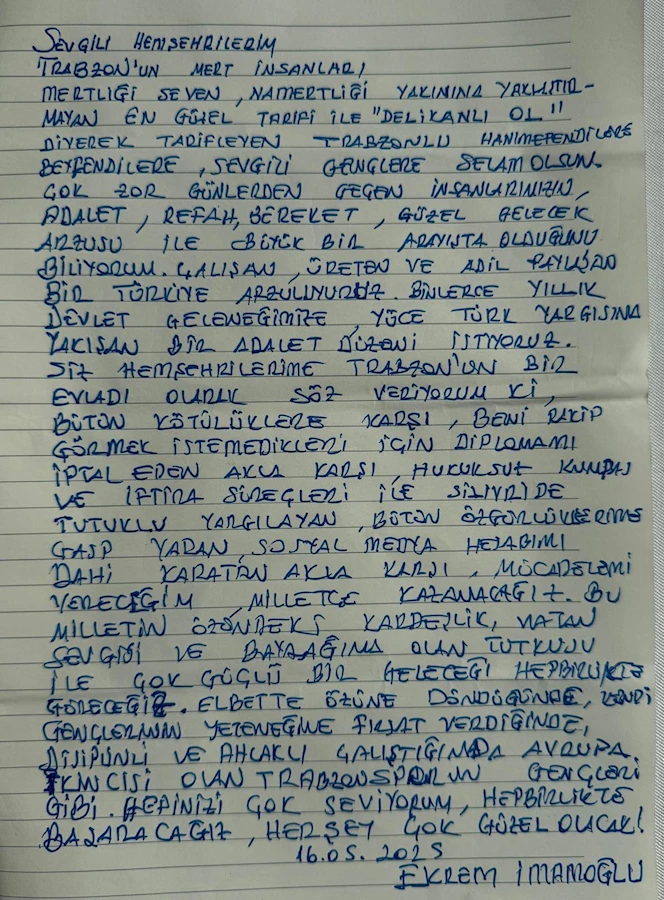 SEVGİLİ HEMŞEHRİLERİM
TRABZON'UN MERT İNSANLARI
MERTLİĞİ SEVEN, NAMERTLİĞİ YAKININA YAKLAŞTIR-
MAYAN EN GÜZEL TARİFİ İLE "DELİKANLI OL"
DİYEREK TARİFLEYEN TRABZONLU HANIMEFENDİLERE
BEYEFENDİLERE, SEVGİLİ GENÇLERE SELAM OLSUN.
ÇOK ZOR GÜNLERDEN GEÇEN İNSANLARIMIZIN,
ADALET, REFAH, BEREKET, GÜZEL GELECEK
ARZUSU İLE BÜYÜK BİR ARAYIŞTA OLDUĞUNU
BİLİYORUM. ÇALIŞAN, ÜRETEN VE ADİL PAYLAŞAN
BİR TÜRKİYE ARZULUYORUZ. BİNLERCE YILLIK
DEVLET GELENEĞİMİZE, YÜCE TÜRK YARGISINA
YAKIŞAN BİR ADALET DÜZENİ İSTİYORUZ.
SİZ HEMŞEHRİLERİME TRABZON'UN BİR
EVLADI OLARAK SÖZ VERİYORUM Kİ,
BÜTÜN KÖTÜLÜKLERE KARŞI, BENİ RAKİP
GÖRMEK İSTEMEDİKLERİ İÇİN DİPLOMAMI
İPTAL EDEN AKLA KARŞI, HUKUKSUZ KUMPAS
VE İFTİRA SÜREÇLERİ İLE SİLİVRİDE
TUTUKLU YARGILAYAN, BÜTÜN ÖZGÜRLÜKLERİME
GASP YAPAN, SOSYAL MEDYA HESABIMI
DAHİ KARATAN AKLA KARŞI, MÜCADELEMİ
VERECEĞİM, MİLLETÇE KAZANACAĞIZ. BU
MİLLETİN ÖZÜNDEKİ KARDEŞLİK, VATAN
SEVGİSİ VE BAYRAĞINA OLAN TUTKUSU
İLE ÇOK GÜÇLÜ BİR GELECEĞİ HEPBİRLİKTE
GÖRECEĞİZ. ELBETTE ÖZÜNE DÖNDÜĞÜNDE, KENDİ
GENÇLERİNİN YETENEĞİNE FIRSAT VERDİĞİNDE,
DİSİPLİNLİ VE AHLAKLI ÇALIŞTIĞINDA AVRUPA
İKİNCİSİ OLAN TRABZONSPORUN GENÇLERİ
GİBİ. HEPİNİZİ ÇOK SEVİYORUM, HEPBİRLİKTE
BAŞARACAĞIZ, HERŞEY ÇOK GÜZEL OLACAK!
16.05.2025
EKREM İMAMOĞLU